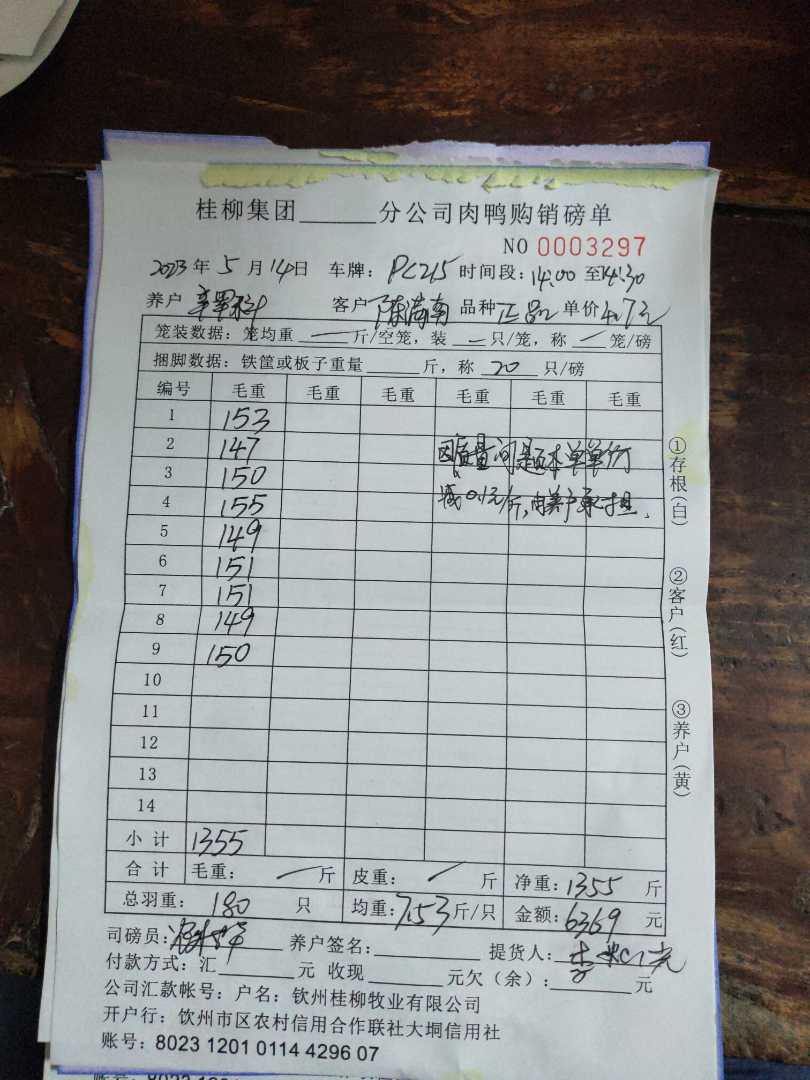 桂柳集团______分公司肉鸭购销磅单
NO 0003297
2023年5月14日 车牌:PC215 时间段:14:00至14:30
养户 客户 陈满南 品种 正品 单价4.7元
笼装数据:笼均重 — 斤/空笼,装 — 只/笼,称 — 笼/磅
捆脚数据:铁筐或板子重量______斤,称 20 只/磅
编号 毛重 毛重 毛重 毛重 毛重 毛重
1 153
2 147
因质量问题本单单价
3 150
4 155
减0.1元/斤,由养户承担.
5 149
6 151
7 151
8 149
9 150
10
11
12
13
14
小计 1355
合计 毛重: — 斤 皮重: — 斤 净重:1355 斤
总羽重: 180 只 均重:7.53斤/只 金额:6369 元
司磅员: 养户签名:______ 提货人:
付款方式:汇______元 收现______元欠(余):______元
公司汇款帐号:户名:钦州桂柳牧业有限公司
开户行:钦州市区农村信用合作联社大垌信用社
账号:8023 1201 0114 4296 07
①存根(白)
②客户(红)
③养户(黄)